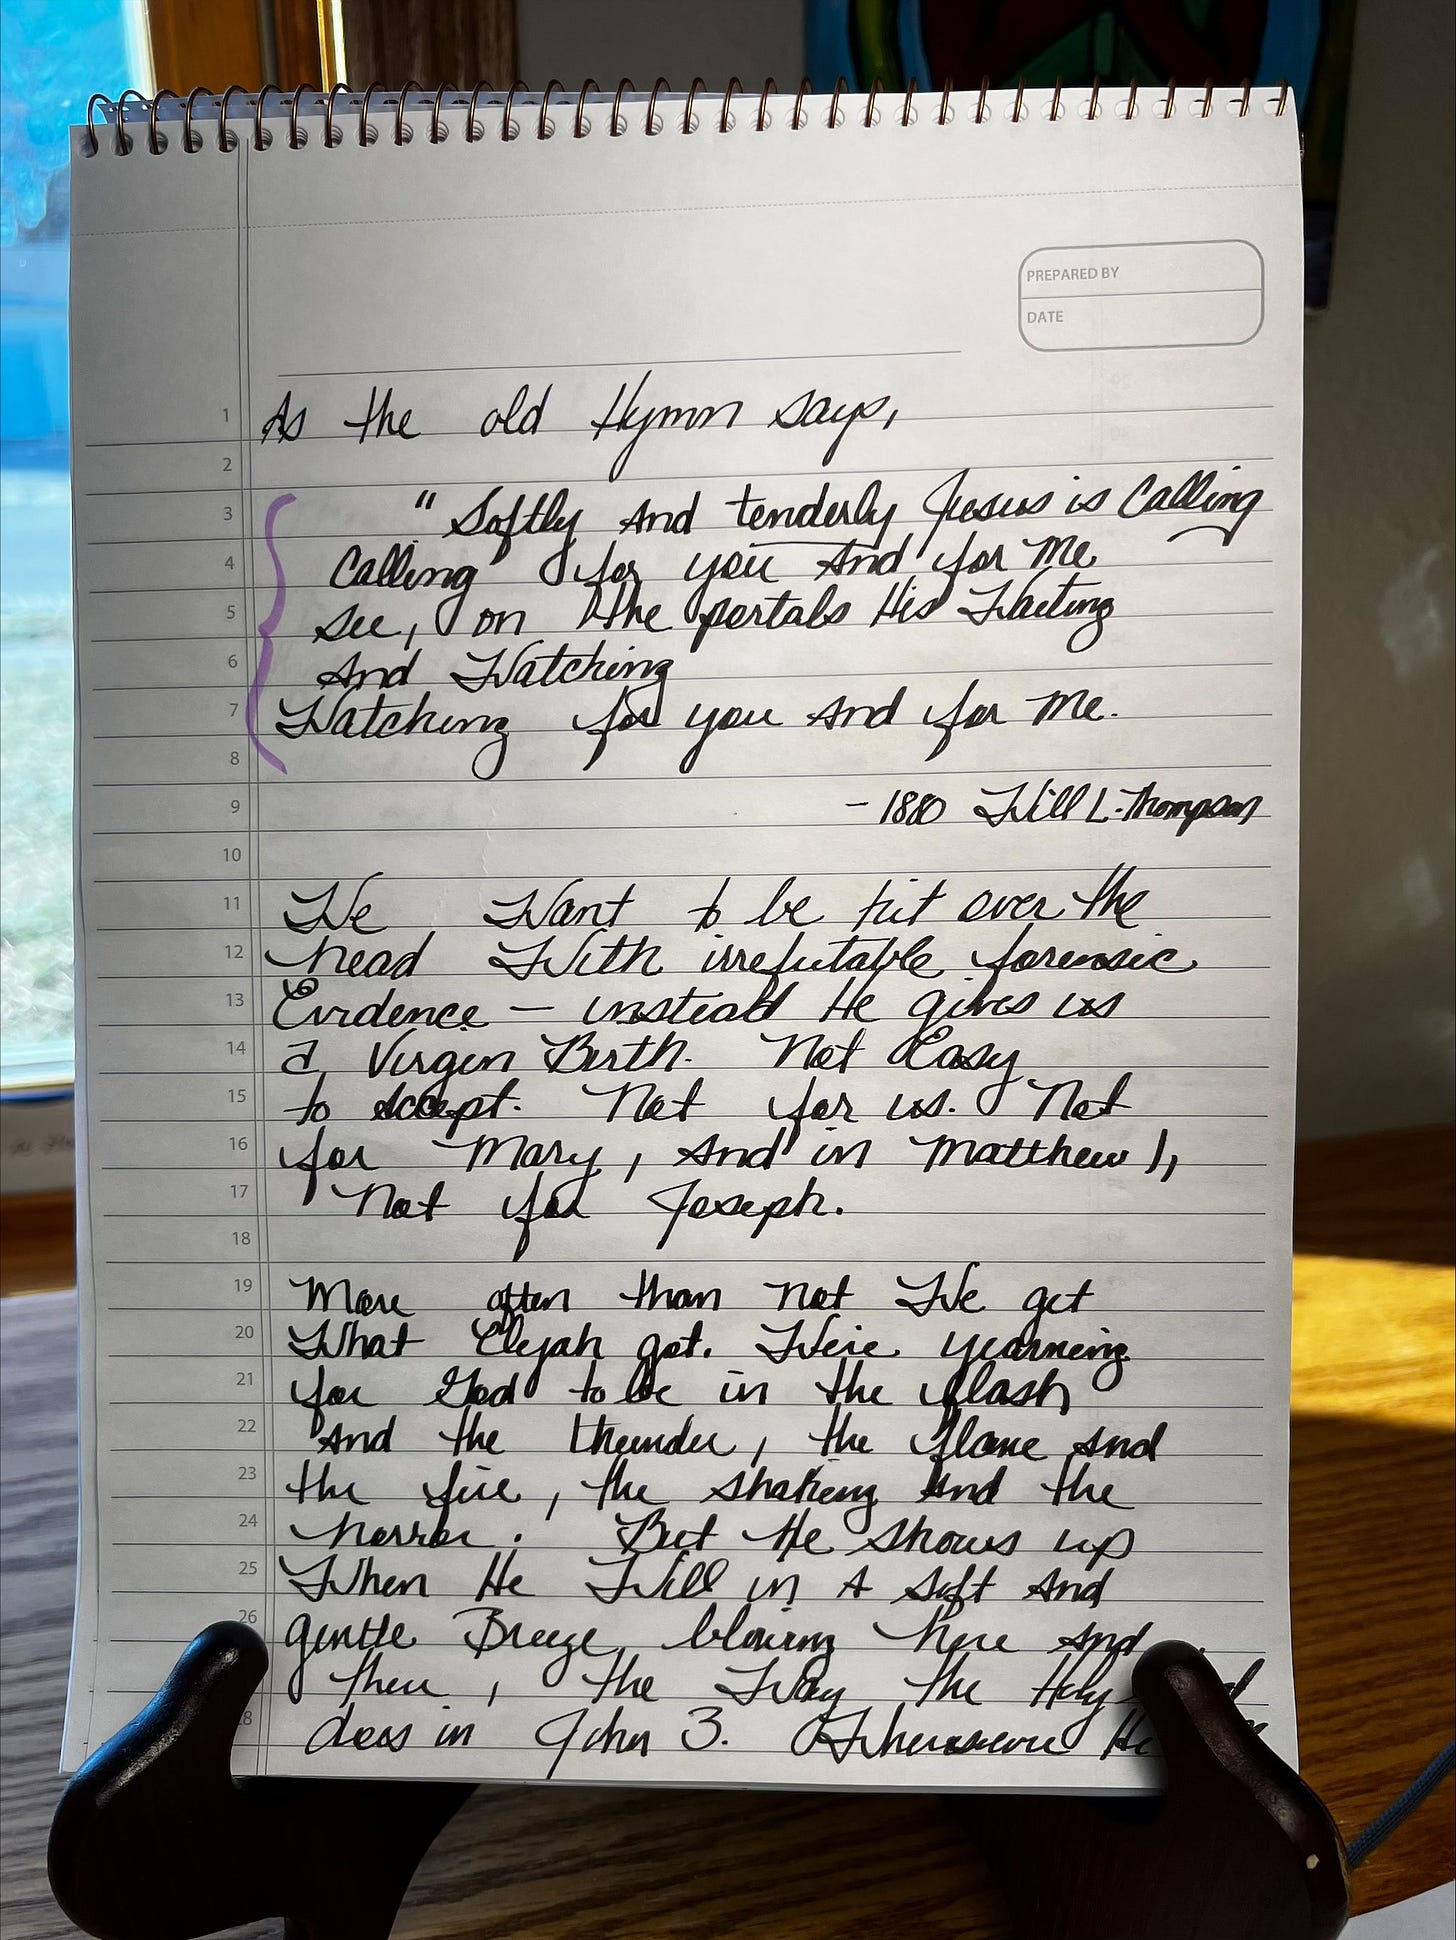 PREPARED BY
DATE
1 As the old Hymn says,
2
3 "Softly And tenderly Jesus is Calling
4 Calling for you And for Me
5 See, on the portals His Waiting
6 And Watching
7 Watching for you And for Me.
8
9 - 1880 Will L. Thompson
10
11 We Want to be hit over the
12 head With irrefutable forensic
13 Evidence — instead He gives us
14 a Virgin Birth. Not Easy
15 to accept. Not for us. Not
16 for Mary, And in Matthew 1,
17 Not for Joseph.
18
19 More often than not We get
20 What Elijah got. We're yearning
21 for God to be in the flash
22 And the thunder, the flame and
23 the fire, the shaking And the
24 horror. But He shows up
25 When He Will in A Soft And
26 gentle Breeze blowing here and
there, the Way the Holy
8 does in John 3.